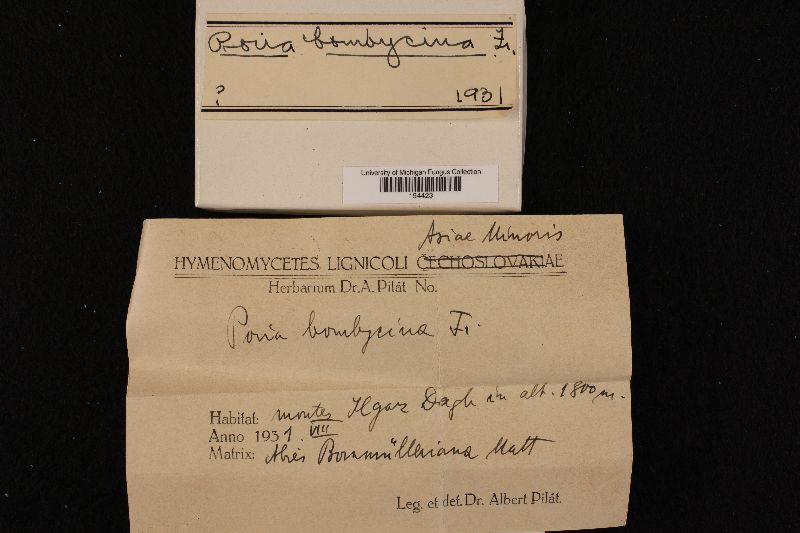 Poria bombycina Fr.
? 1931
University of Michigan Fungus Collection
154423
Asiae Minoris
HYMENOMYCETES LIGNICOLI ČECHOSLOVAKIAE
Herbarium Dr. A. Pilát No.
Poria bombycina Fr.
Habitat: montes Ilgaz Dagh in alt. 1800 m.
Anno 1931. VIII
Matrix: Abies Bornmülleriana Matt
Leg. et det. Dr. Albert Pilát.